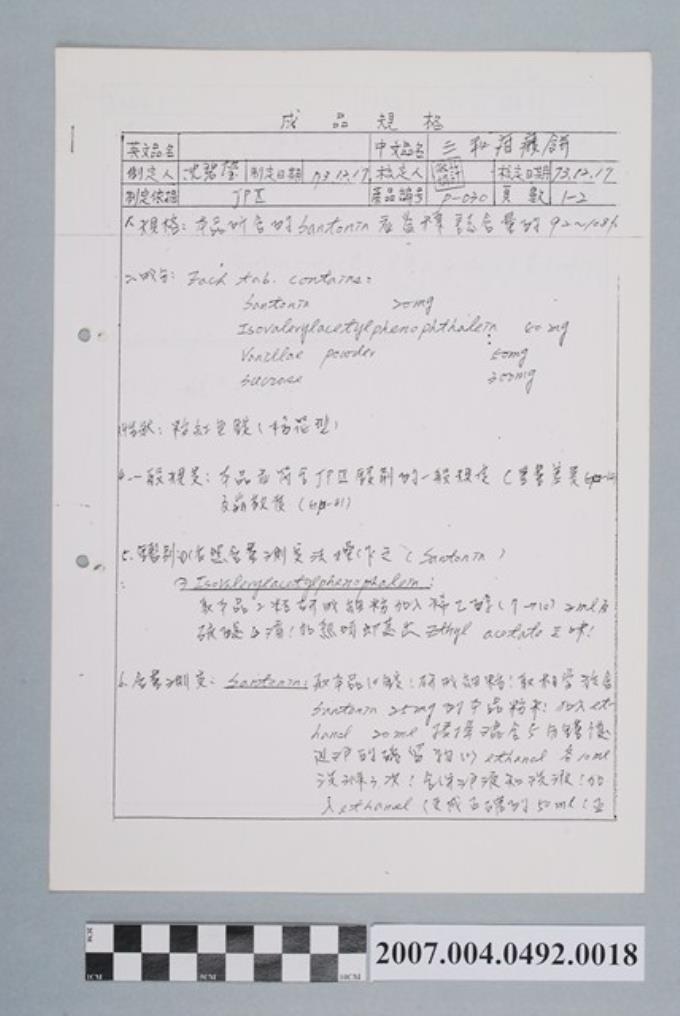 成品規格
英文品名 中文品名 三和疳積餅
制定人 沈 制定日期 73.12.17 核定人 核定日期 73.12.17
制定依據 JP 產品編號 P-030 頁數 1-2
規格:本品所含的Santonin應為標示含量的92~108%
成分:Each tab. contains:
Santonin 20mg
Isovalerylacetylphenophthalein 60mg
Vanillae powder 50mg
Sucrose 300mg
性狀:粉紅色錠(梅花型)
4.一般規定:本品應符合JP 錠劑的一般規定(重量差異
5.鑑別:(1)依照含量測定法操作之(Santonin)
Isovalerylacetylphenophalein:
取本品2粒研成細粉加入稀乙醇(7→10)2ml及
硫酸 滴!加熱時即產出Ethyl acetate之味!
6.含量測定:Santonin:取本品10錠!研成細粉!取相當於含
Santonin 25mg的本品粉末!加入et-
hanol 20ml 攪拌混合5分鐘後
過濾的殘留物以ethanol各10ml
洗滌 次!合併濾液和洗液!加
入ethanol使成正確的50ml!
8CM
1CM 5CM 10CM
2007.004.0492.0018